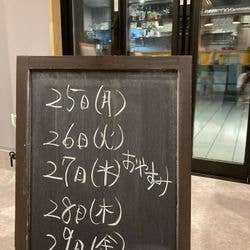 25日(月)
26日(火)
27日(水)おやすみ
28日(木)
29日(金)